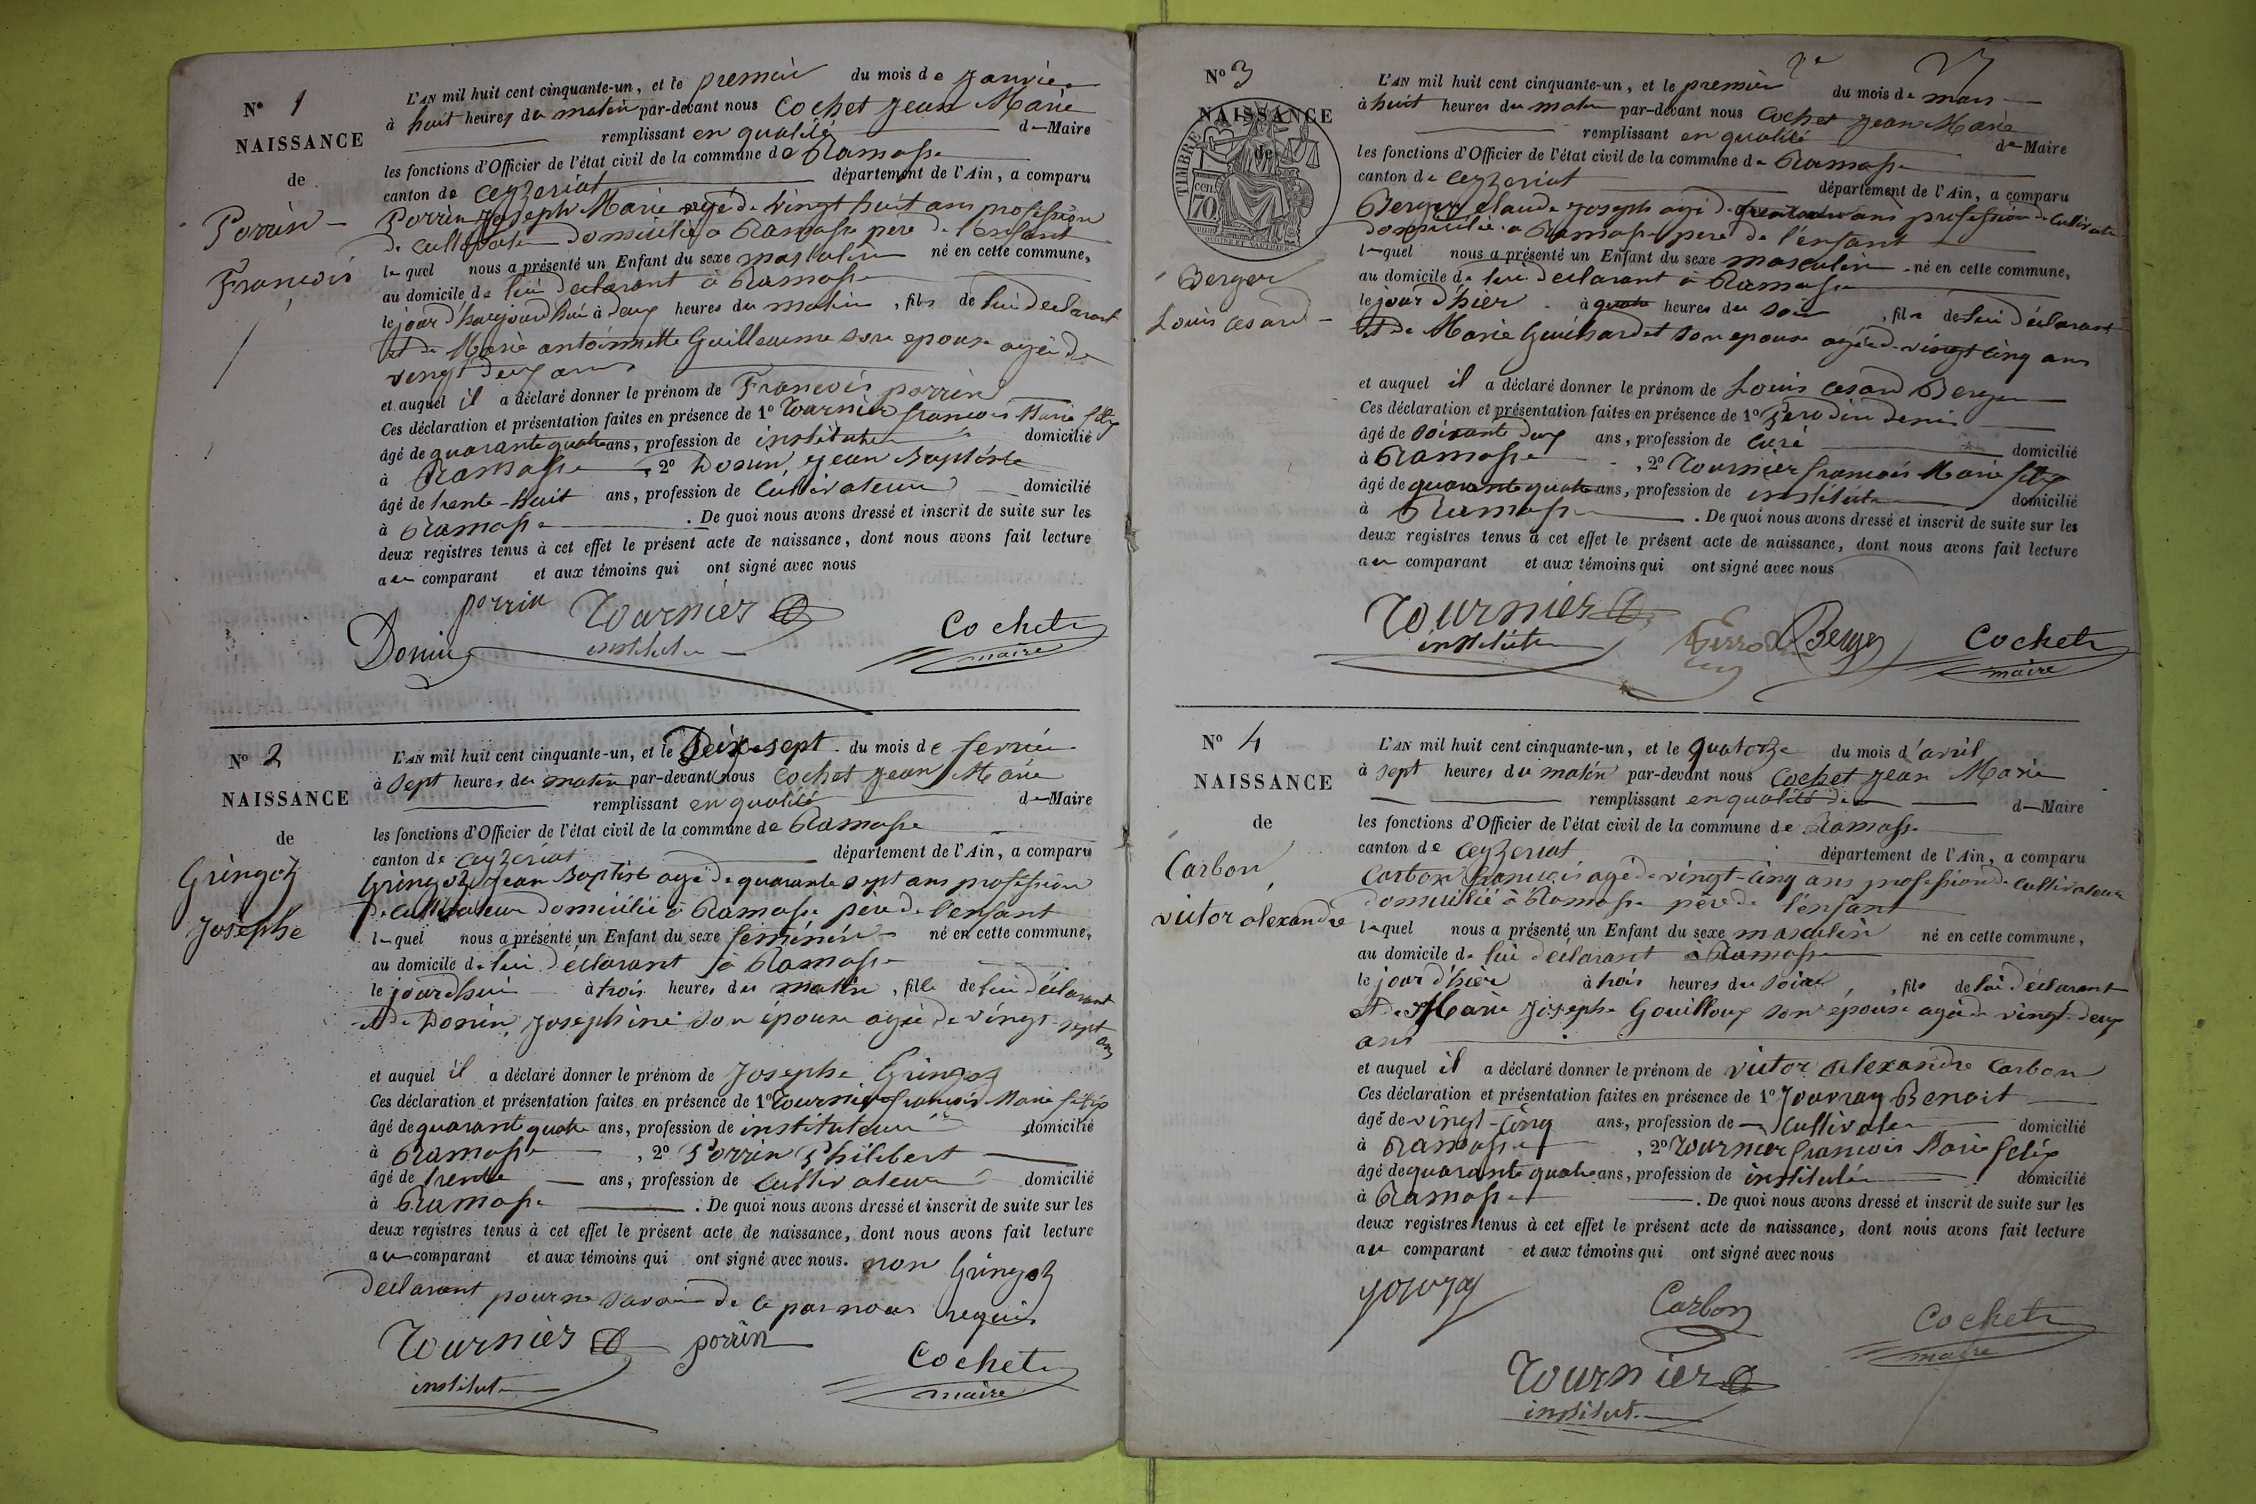 N° 1
NAISSANCE
de
Porrin
François
L'AN mil huit cent cinquante-un, et le premier du mois de Janvier
à huit heures du matin par-devant nous Cochet Jean Marie
remplissant en qualité de Maire
les fonctions d'Officier de l'état civil de la commune de Ramasse
canton de Ceyzeriat département de l'Ain, a comparu
Porrin Joseph Marie agé de vingt huit ans profession
de cultivateur domicilié à Ramasse pere de l'enfant
lequel nous a présenté un Enfant du sexe masculin né en cette commune,
au domicile de lui declarant à Ramasse
le jour d'haujourd'hui à deux heures du matin, fils de lui declarant
et de Marie antoinnette Guilleaume son epouse agée de
vingt deux ans
et auquel il a déclaré donner le prénom de François porrin
Ces déclaration et présentation faites en présence de 1° Tournier françois Marie félix
âgé de quarante quatre ans, profession de instituteur domicilié
à Ramasse, 2° Donin, Jean Baptiste
âgé de trente-huit ans, profession de Cultivateur domicilié
à Ramasse. De quoi nous avons dressé et inscrit de suite sur les
deux registres tenus à cet effet le présent acte de naissance, dont nous avons fait lecture
au comparant et aux témoins qui ont signé avec nous
porrin Tournier
Donin institut Cochet
maire
N° 2
NAISSANCE
de
Gringoz
Josephe
L'AN mil huit cent cinquante-un, et le Dix-sept du mois de fevrier
à sept heures du matin par-devant nous Cochet Jean Marie
remplissant en qualité de Maire
les fonctions d'Officier de l'état civil de la commune de Ramasse
canton de Ceyzeriat département de l'Ain, a comparu
Gringoz Jean Baptiste agé de quarante sept ans profession
de cultivateur domicilié à Ramasse père de l'enfant
lequel nous a présenté un Enfant du sexe féminin né en cette commune,
au domicile de lui déclarant à Ramasse
le jourdhui à trois heures du matin, fille de lui déclarant
et de Donin, Josephine son épouse agée de vingt sept
ans
et auquel il a déclaré donner le prénom de Josephe Gringoz
Ces déclaration et présentation faites en présence de 1° Tournier françois Marie félix
âgé de quarante quatre ans, profession de instituteur domicilié
à Ramasse, 2° Porrin Philibert
âgé de trente ans, profession de Cultivateur domicilié
à Ramasse. De quoi nous avons dressé et inscrit de suite sur les
deux registres tenus à cet effet le présent acte de naissance, dont nous avons fait lecture
au comparant et aux témoins qui ont signé avec nous. non Gringoz
declarant pour ne savoir de ce par nous requis
Tournier porrin Cochet
institut maire
N° 3
NAISSANCE
de
TIMBRE
70 cen.
Berger
Louis césard
L'AN mil huit cent cinquante-un, et le premier du mois de mars
à huit heures du matin par-devant nous Cochet Jean Marie
remplissant en qualité de Maire
les fonctions d'Officier de l'état civil de la commune de Ramasse
canton de Ceyzeriat département de l'Ain, a comparu
Berger Claude Joseph agé de ans profession de Cultivateur
domicilié à Ramasse pere de l'enfant
lequel nous a présenté un Enfant du sexe masculin né en cette commune,
au domicile de lui declarant à Ramasse
le jour d'hier à quatre heures du soir, fils de lui déclarant
et de Marie Guichardet son epouse agée de vingt cinq ans
et auquel il a déclaré donner le prénom de Louis césard Berger
Ces déclaration et présentation faites en présence de 1° denis
âgé de soixante deux ans, profession de curé domicilié
à Ramasse, 2° Tournier françois Marie félix
âgé de quarante quatre ans, profession de instituteur domicilié
à Ramasse. De quoi nous avons dressé et inscrit de suite sur les
deux registres tenus à cet effet le présent acte de naissance, dont nous avons fait lecture
au comparant et aux témoins qui ont signé avec nous
Tournier Berger Cochet
institut maire
N° 4
NAISSANCE
de
Carbon
victor alexandre
L'AN mil huit cent cinquante-un, et le quatorze du mois d'avril
à sept heures du matin par-devant nous Cochet Jean Marie
remplissant en qualité de de Maire
les fonctions d'Officier de l'état civil de la commune de Ramasse
canton de Ceyzeriat département de l'Ain, a comparu
Carbon françois agé de vingt-cinq ans profession de Cultivateur
domicilié à Ramasse père de l'enfant
lequel nous a présenté un Enfant du sexe masculin né en cette commune,
au domicile de lui déclarant à Ramasse
le jour d'hier à trois heures du soir, fils de lui déclarant
et de Marie Josephe Gouilloux son épouse agée de vingt-deux
ans
et auquel il a déclaré donner le prénom de victor alexandre Carbon
Ces déclaration et présentation faites en présence de 1° Jouvray Benoit
âgé de vingt-cinq ans, profession de Cultivateur domicilié
à Ramasse, 2° Tournier françois Marie félix
âgé de quarante quatre ans, profession de instituteur domicilié
à Ramasse. De quoi nous avons dressé et inscrit de suite sur les
deux registres tenus à cet effet le présent acte de naissance, dont nous avons fait lecture
au comparant et aux témoins qui ont signé avec nous
Carbon Cochet
maire
Tournier
institut